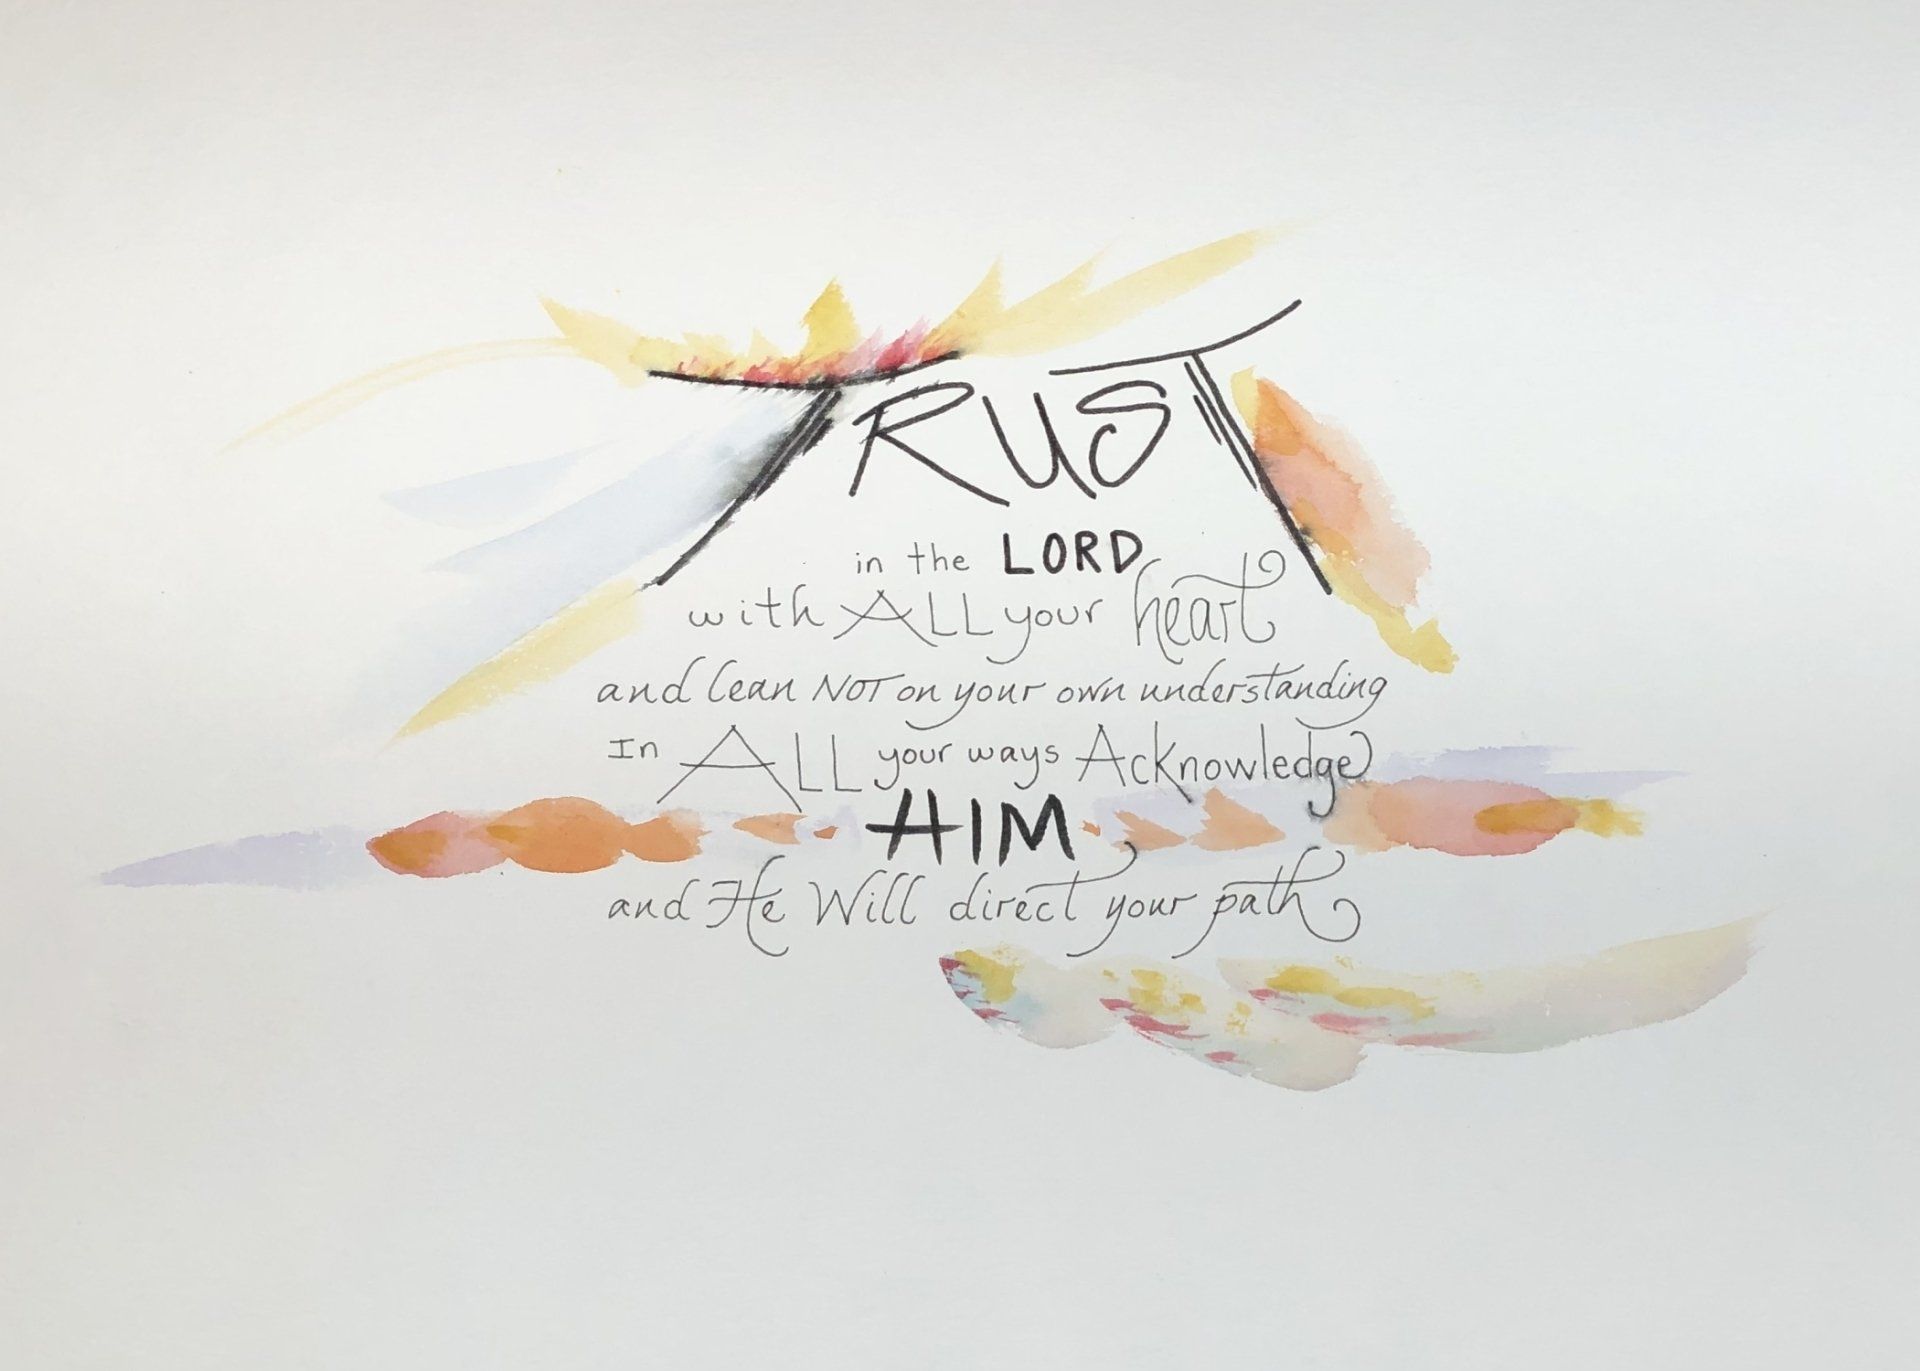 TRUST
in the LORD
with ALL your heart
and lean NOT on your own understanding
In ALL your ways Acknowledge
HIM
and He Will direct your path